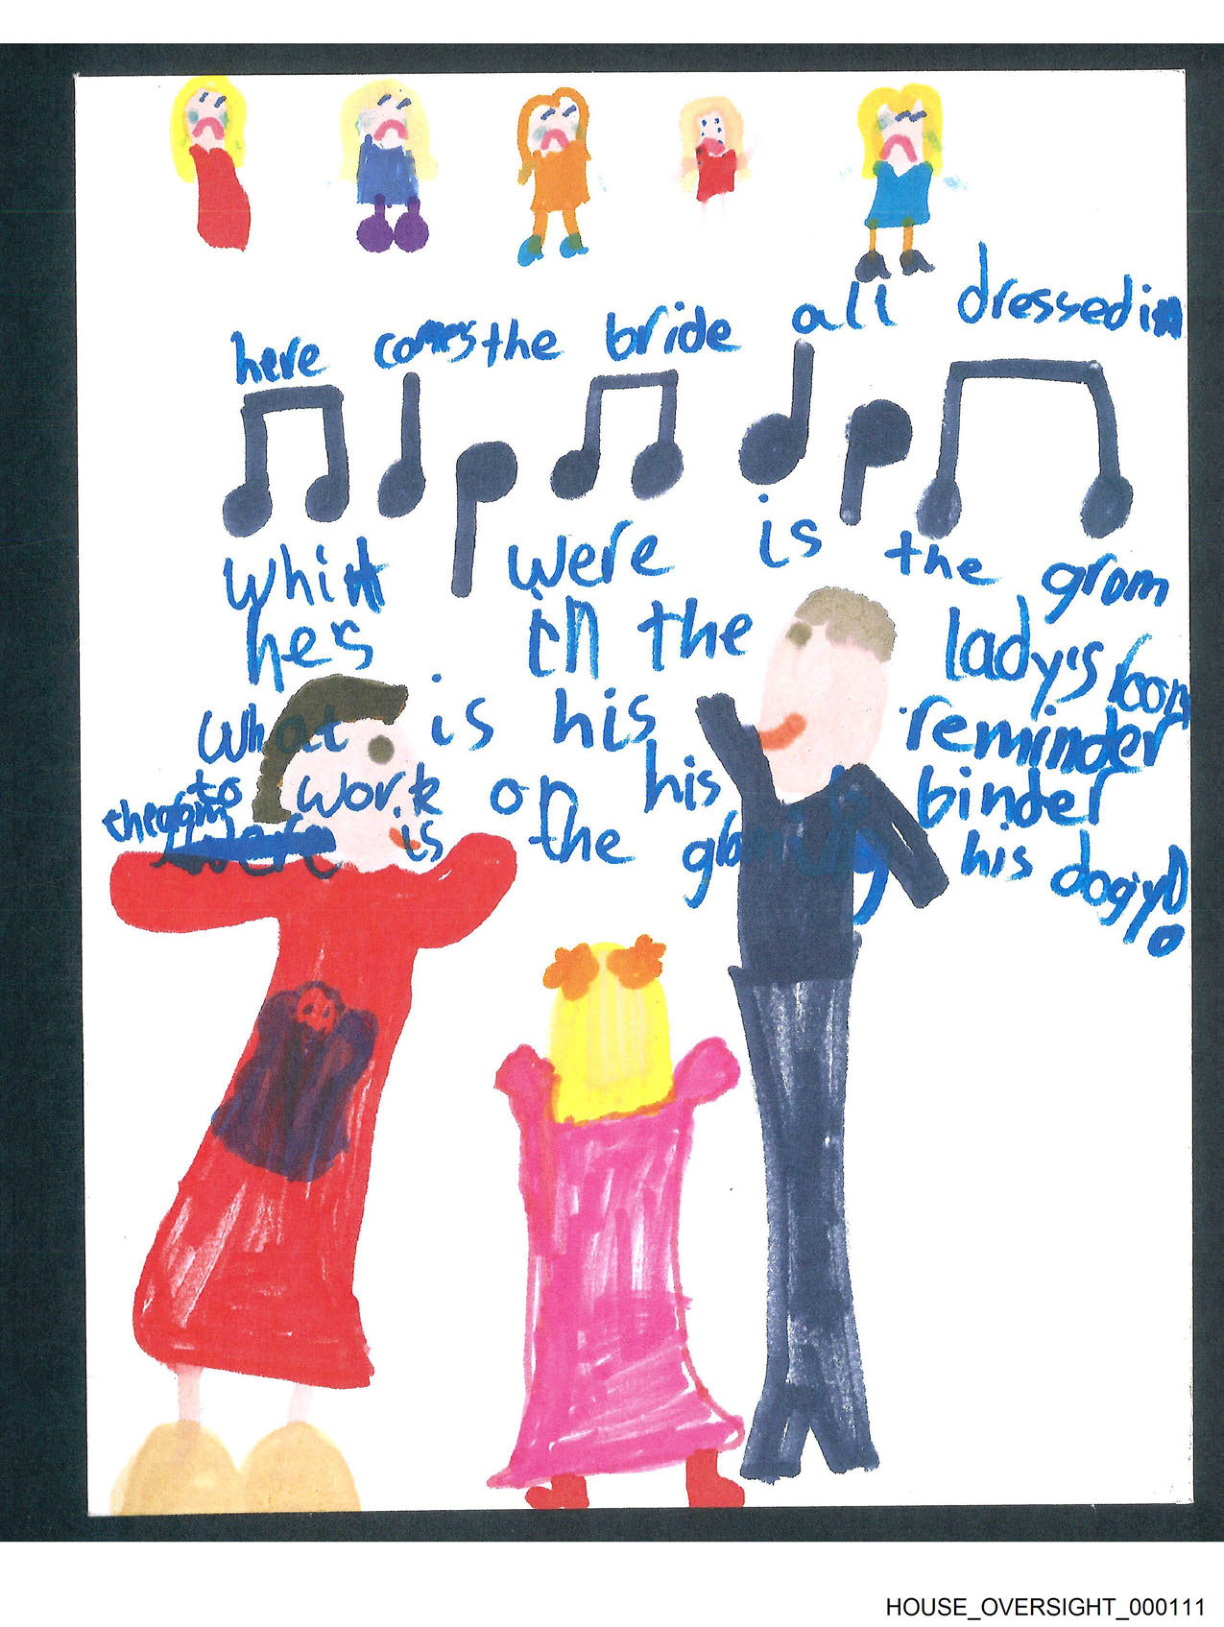 here comes the bride all dressed in
whint were is the grom
he's in the lady's
what is his reminder
to work on his binder
is the his dogy!
HOUSE_OVERSIGHT_000111